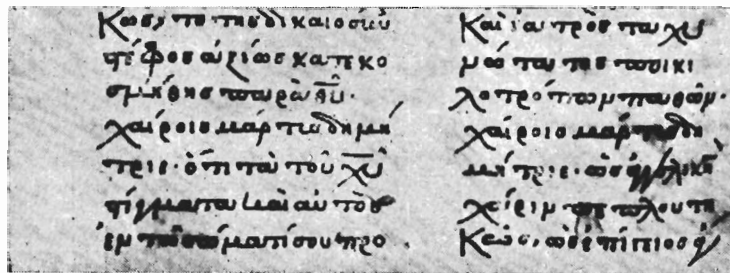 κῶς, τὸ τῆς δικαιοσύν
στέφος ἀξίως κατεκο
σμήθης παρὰ θῦ·
χαίροις μάρτυς δημή
τριε· ὅτι τὰ τοῦ χῦ
στίγματα καὶ αὐτὸς
ἐν τῶ σώματί σου προ
Καὶ ἰατρὸς ταχυ
ποικι
λοτρόπων παθῶν·
χαίροις μάρτυς δη
μήτριε· ὡς ἀγγελικῆ
χειρὶ πλουτη
κῶς, ὡς ἐπίγειος ἄγ